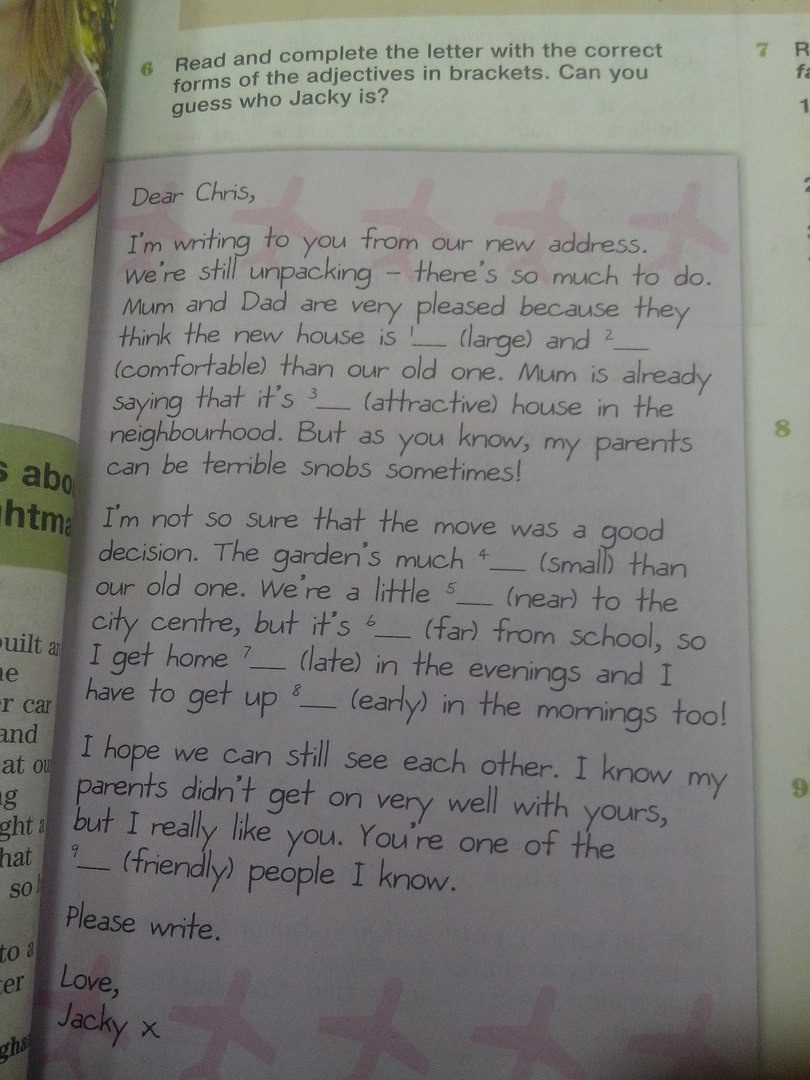 6 Read and complete the letter with the correct
forms of the adjectives in brackets. Can you
guess who Jacky is?
Dear Chris,
I'm writing to you from our new address.
We're still unpacking – there's so much to do.
Mum and Dad are very pleased because they
think the new house is 1__ (large) and 2__
(comfortable) than our old one. Mum is already
saying that it's 3__ (attractive) house in the
neighbourhood. But as you know, my parents
can be terrible snobs sometimes!
I'm not so sure that the move was a good
decision. The garden's much 4__ (small) than
our old one. We're a little 5__ (near) to the
city centre, but it's 6__ (far) from school, so
I get home 7__ (late) in the evenings and I
have to get up 8__ (early) in the mornings too!
I hope we can still see each other. I know my
parents didn't get on very well with yours,
but I really like you. You're one of the
9__ (friendly) people I know.
Please write.
Love,
Jacky x
7 R
fa
1
2
8
9
s abo
htma
uilt a
r car
and
at ou
ght a
hat
so
to a